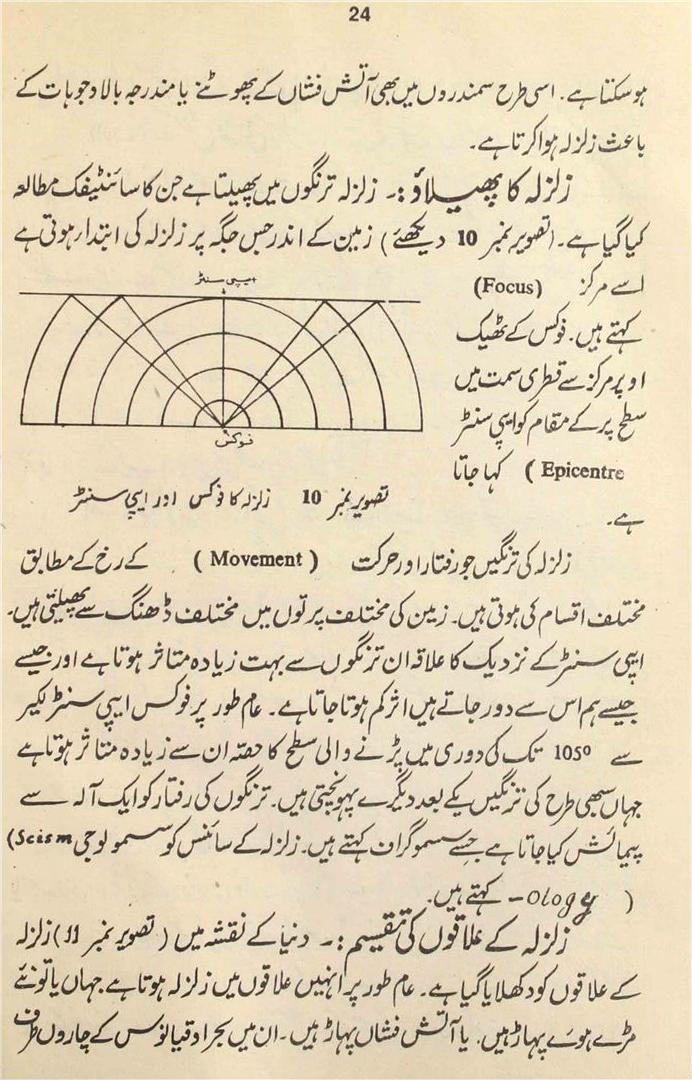 24
ہوسکتا ہے۔ اسی طرح سمندروں میں بھی آتش فشاں کے پھوٹنے یا مندرجہ بالا وجوہات کے
باعث زلزلہ ہوا کرتا ہے۔
زلزلہ کا پھیلاؤ :۔ زلزلہ ترنگوں میں پھیلتا ہے جن کا سائنٹیفک مطالعہ
کیا گیا ہے۔ (تصویر نمبر 10 دیکھئے) زمین کے اندر جس جگہ پر زلزلہ کی ابتدا ہوتی ہے
اسے مرکز (Focus)
کہتے ہیں۔ فوکس کے ٹھیک
اوپر مرکز سے قطری سمت میں
سطح پر کے مقام کو ایپی سنٹر
( Epicentre کہا جاتا
ہے۔
ایپی سنٹر
فوکس
تصویر نمبر 10 زلزلہ کا فوکس اور ایپی سنٹر
زلزلہ کی ترنگیں جو رفتار اور حرکت ( Movement ) کے رخ کے مطابق
مختلف اقسام کی ہوتی ہیں۔ زمین کی مختلف پرتوں میں مختلف ڈھنگ سے پھیلتی ہیں۔
ایپی سنٹر کے نزدیک کا علاقہ ان ترنگوں سے بہت زیادہ متاثر ہوتا ہے اور جیسے
جیسے ہم اس سے دور جاتے ہیں اثر کم ہوتا جاتا ہے۔ عام طور پر فوکس ایپی سنٹر لکیر
سے 105° تک کی دوری میں پڑنے والی سطح کا حصہ ان سے زیادہ متاثر ہوتا ہے
جہاں سبھی طرح کی ترنگیں یکے بعد دیگرے پہونچتی ہیں۔ ترنگوں کی رفتار کو ایک آلہ سے
پیمائش کیا جاتا ہے جسے سسموگراف کہتے ہیں۔ زلزلہ کے سائنس کو سسمولوجی (Scism
( ology - کہتے ہیں۔
زلزلہ کے علاقوں کی تقسیم :۔ دنیا کے نقشہ میں (تصویر نمبر 11) زلزلہ
کے علاقوں کو دکھلایا گیا ہے۔ عام طور پر انہیں علاقوں میں زلزلہ ہوتا ہے جہاں یا تو نئے
مڑے ہوئے پہاڑ ہیں۔ یا آتش فشاں پہاڑ ہیں۔ ان میں بحر اوقیانوس کے چاروں طرف